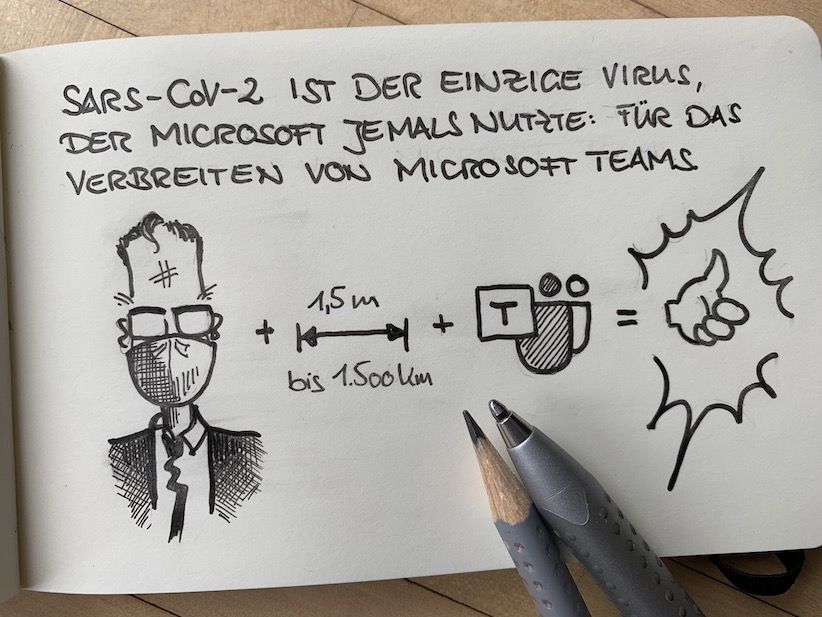 SARS-CoV-2 IST DER EINZIGE VIRUS,
DER MICROSOFT JEMALS NUTZTE: FÜR DAS
VERBREITEN VON MICROSOFT TEAMS.
1,5m
+ + T =
bis 1.500km